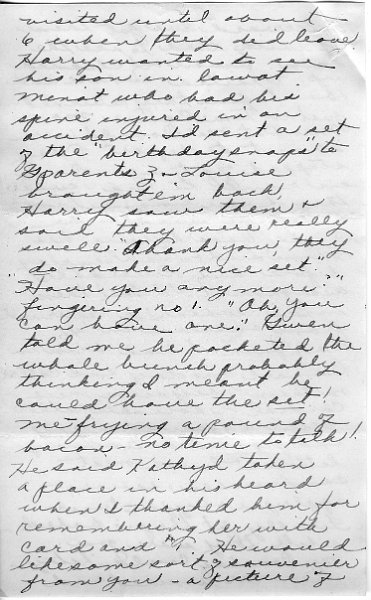 visited until about
6 when they did leave
Harry wanted to see
his son in law at
Minot who had his
spine injured in an
accident. I'd sent a "set
of the "birthday snaps" to
Gparents Z & Louise
brought em back,
Harry saw them &
said they were really
swell. "Thank you, they
do make a nice set."
"Have you any more?"
fingering no 1. "Oh, you
can have one." Gwen
told me he pocketed the
whole bunch probably
thinking I meant he
could have the set!
me frying a pound of
bacon - no time to talk!
He said Kathy'd taken
a place in his heard
when I thanked him for
remembering her with
card and
He would
like some sort of souvenier
from you - a picture of